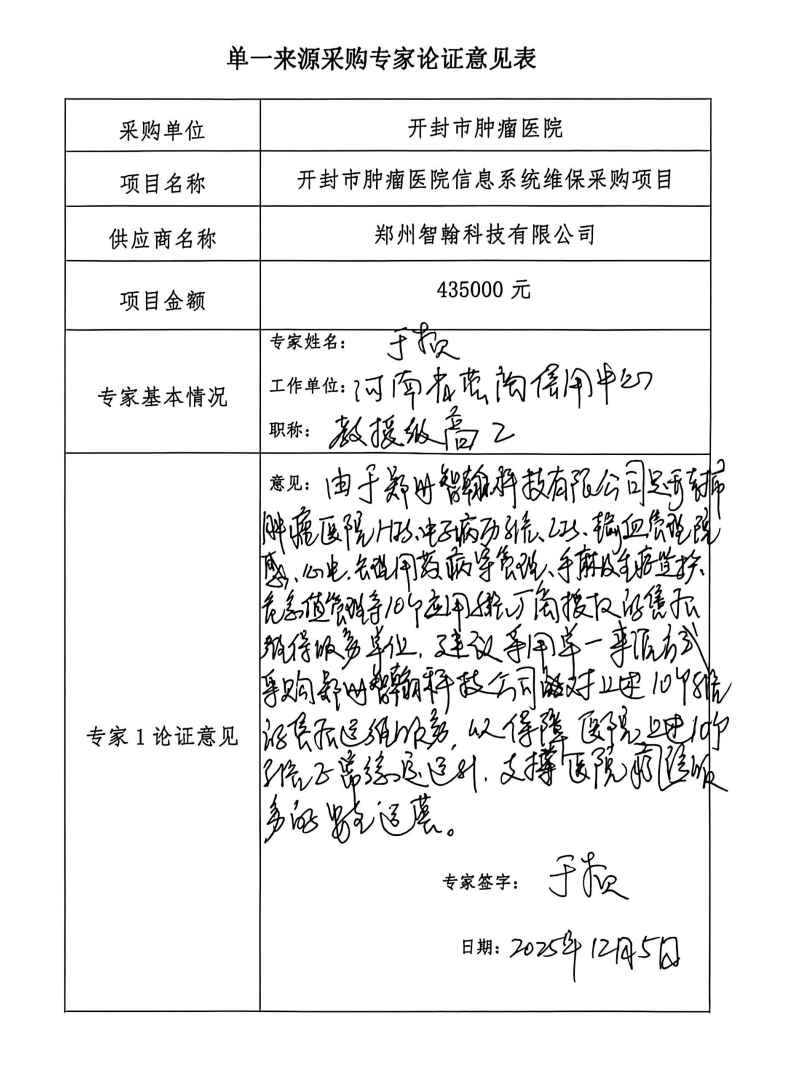 单一来源采购专家论证意见表
采购单位 开封市肿瘤医院
项目名称 开封市肿瘤医院信息系统维保采购项目
供应商名称 郑州智翰科技有限公司
项目金额 435000 元
专家基本情况
专家姓名:
工作单位: 河南省 信用中心
职称: 教授级高工
专家 1 论证意见
意见: 由于郑州智翰科技有限公司是开封市
肿瘤医院HIS、电子病历系统、LIS、输血管理、院
感、心电、合理用药、病案管理、手麻及重症监护、
危急值管理等10个应用系统厂商授权的售后
维保服务单位, 建议采用单一来源方式
采购郑州智翰科技公司 对上述10个系统
的售后运维服务, 以保障医院上述10个
系统正常稳定运行, 支撑医院 服
务的安全运营。
专家签字:
日期: 2025年12月5日